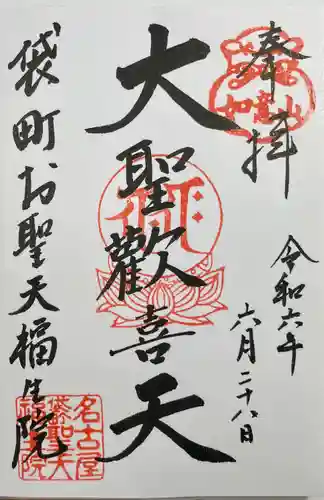 奉拝
如意山
令和六年
六月二十八日
大聖歓喜天
袋町お聖天福生院
名古屋
袋町聖天
福生院